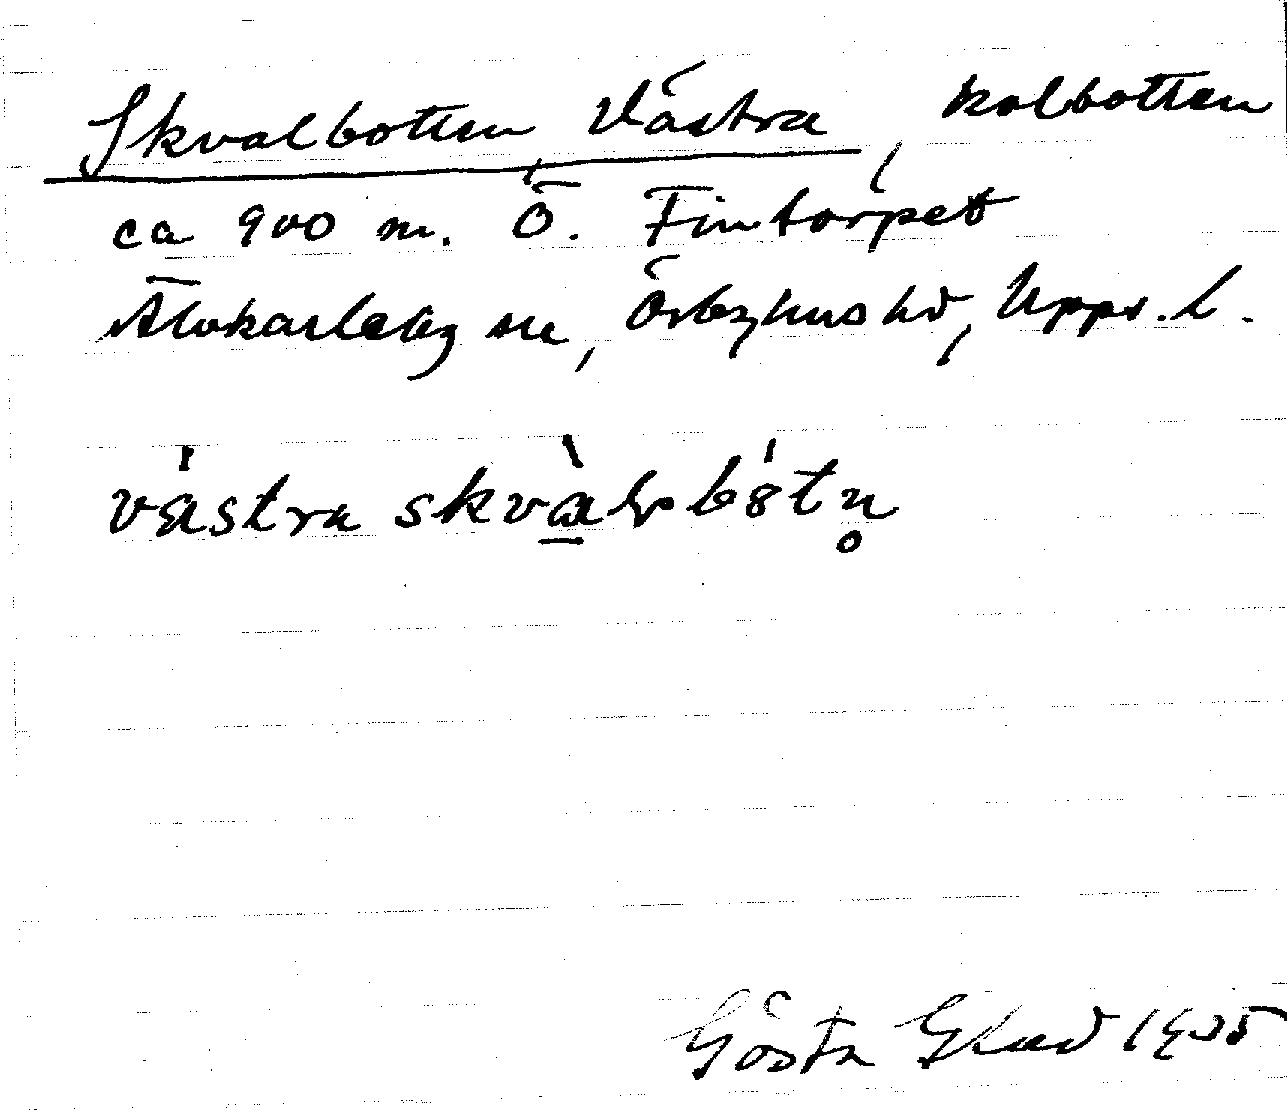 Skvalbotten, Västra, kolbotten
ca 900 m. Ö. Fintorpet
Älvkarleby sn, Örbyhus hd, Upps. l.
västra skvàlbåtn̥
Gösta 1935